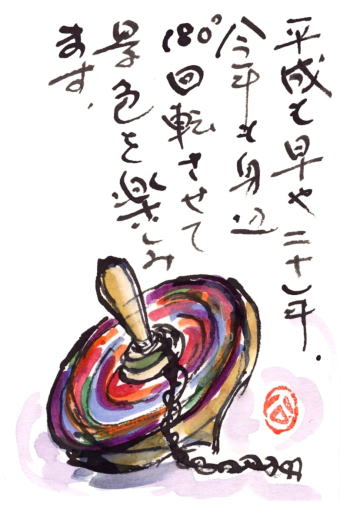 平成も早や二十年.
今年も身辺
180°回転させて
景色を楽しみ
ます.